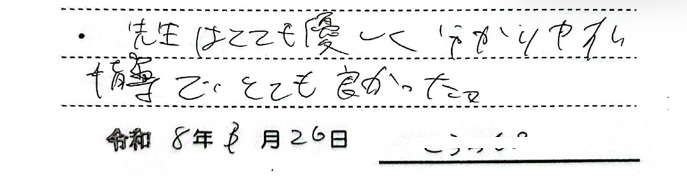 ・先生はとても優しく分かりやすい
指導で、とても良かった。
令和 8年 3月26日